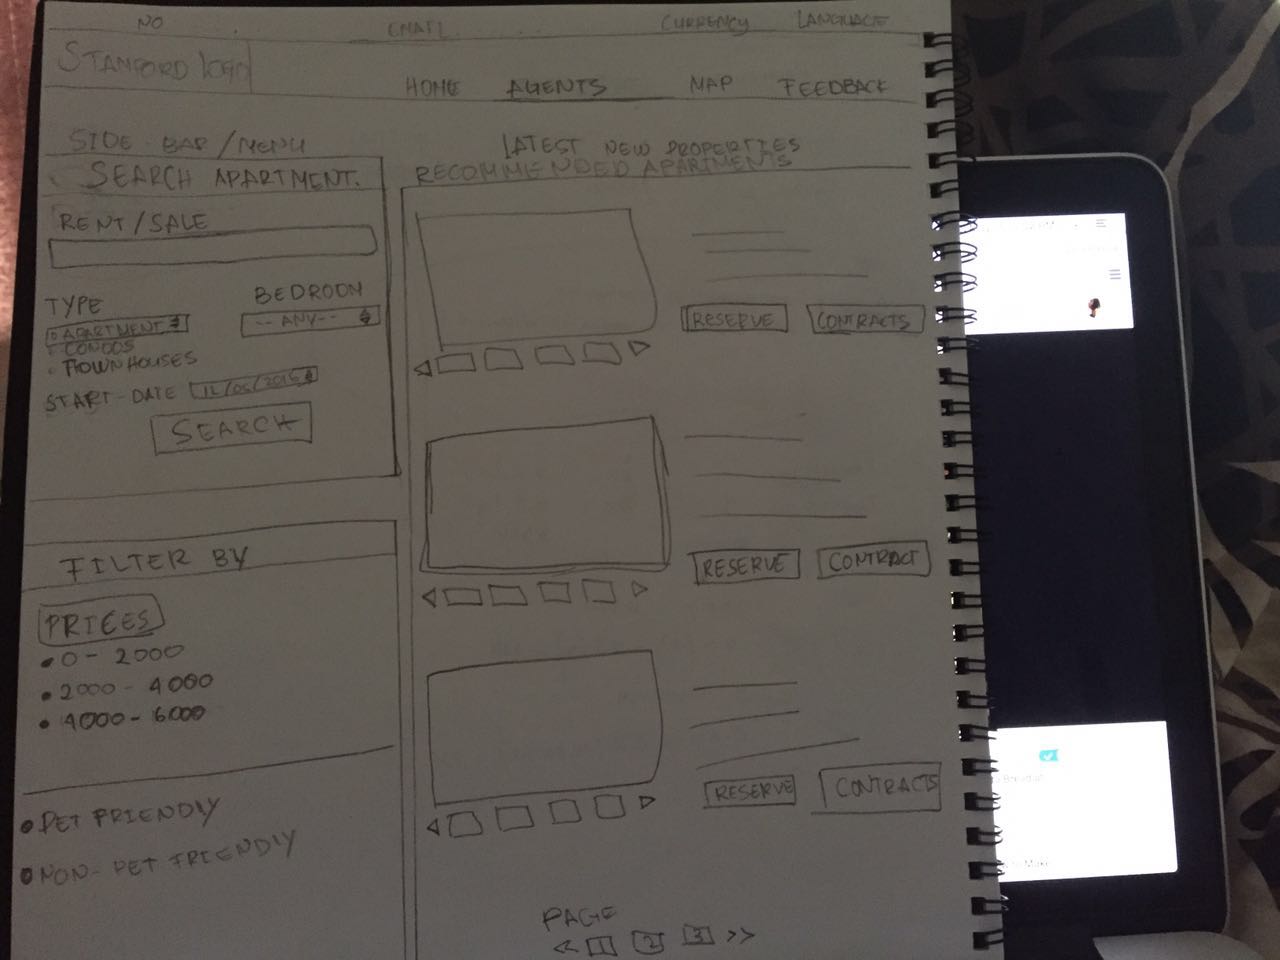 NO EMAIL CURRENCY LANGUAGE
STANFORD logo
HOME AGENTS MAP FEEDBACK
SIDE-BAR/MENU
SEARCH APARTMENT.
RENT/SALE
TYPE BEDROOM
APARTMENT -- ANY --
CONDOS
TOWNHOUSES
START-DATE 12/05/2015
SEARCH
FILTER BY
PRICES
• 0 - 2000
• 2000 - 4000
• 4000 - 6000
• PET FRIENDLY
• NON-PET FRIENDLY
LATEST NEW PROPERTIES
RECOMMENDED APARTMENTS
RESERVE CONTRACTS
RESERVE CONTRACT
RESERVE CONTRACTS
PAGE
<< 1 2 3 >>